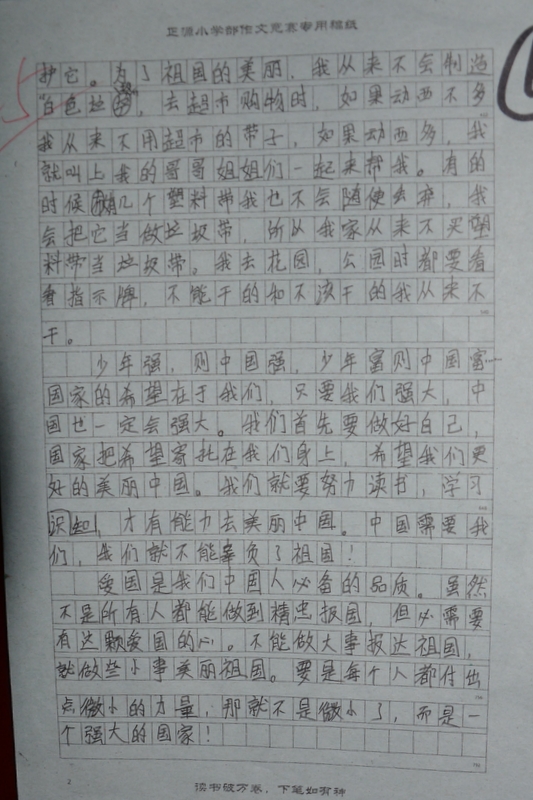 正源小学部作文竞赛专用稿纸
护它。为了祖国的美丽，我从来不会制造
白色垃圾，去超市购物时，如果动西不多
我从来不用超市的带子，如果动西多，我
就叫上我的哥哥姐姐们一起来帮我。有的
时候搞几个塑料带我也不会随便丢弃，我
会把它当做垃圾带，所以我家从来不买塑
料带当垃圾带。我去花园，公园时都要看
看指示牌，不能干的和不该干的我从来不
干。
少年强，则中国强，少年富则中国富……
国家的希望在于我们，只要我们强大，中
国也一定会强大。我们首先要做好自己，
国家把希望寄托在我们身上，希望我们更
好的美丽中国。我们就要努力读书，学习
识知，才有能力去美丽中国。中国需要我
们，我们就不能辜负了祖国！
爱国是我们中国人必备的品质。虽然
不是所有人都能做到精忠报国，但必需要
有这颗爱国的心。不能做大事报达祖国，
就做些小事美丽祖国。要是每个人都付出
点微小的力量，那就不是微小了，而是一
个强大的国家！
2
读书破万卷，下笔如有神